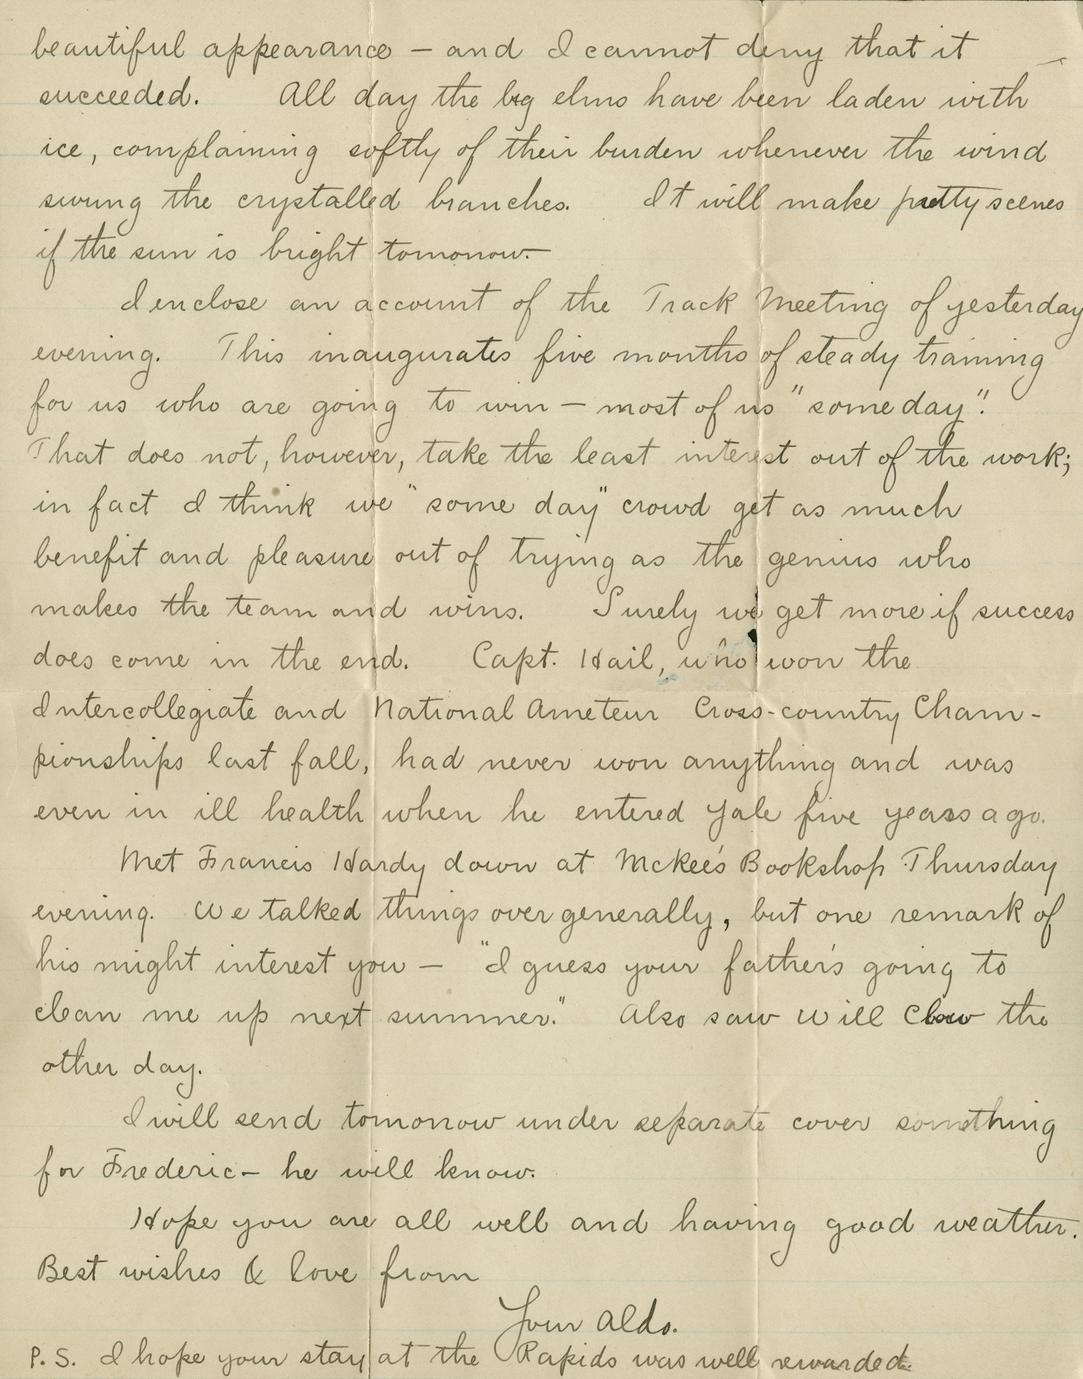 beautiful appearance – and I cannot deny that it
succeeded. All day the big elms have been laden with
ice, complaining softly of their burden whenever the wind
swung the crystalled branches. It will make pretty scenes
if the sun is bright tomorrow.
I enclose an account of the Track Meeting of yesterday
evening. This inaugurates five months of steady training
for us who are going to win – most of us "some day".
That does not, however, take the least interest out of the work;
in fact I think we "some day" crowd get as much
benefit and pleasure out of trying as the genius who
makes the team and wins. Surely we get more if success
does come in the end. Capt. Hail, who won the
Intercollegiate and National Ameteur Cross-country Cham-
pionships last fall, had never won anything and was
even in ill health when he entered Yale five years ago.
Met Francis Hardy down at McKee's Bookshop Thursday
evening. We talked things over generally, but one remark of
his might interest you – "I guess your father's going to
clean me up next summer." Also saw Will Clow the
other day.
I will send tomorrow under separate cover something
for Frederic – he will know.
Hope you are all well and having good weather.
Best wishes & love from
Your Aldo.
P.S. I hope your stay at the Rapids was well rewarded.